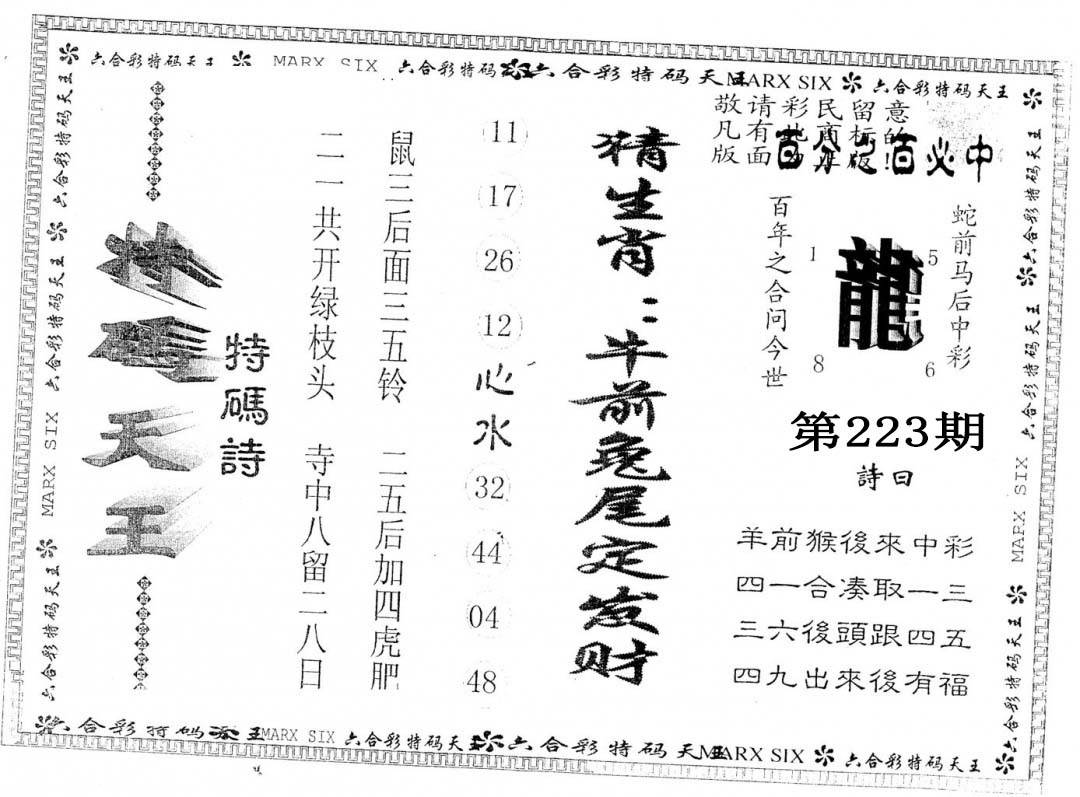 六合彩特码天王
MARX SIX
六合彩特码
六合彩特码天王
MARX SIX
六合彩特码天王
敬请彩民留意
凡有此商标的
版面为正版!
百分之百必中
蛇前马后中彩
百年之合问今世
龍
1
5
8
6
第223期
詩曰
羊前猴後來中彩
四一合凑取一三
三六後頭跟四五
四九出來後有福
猜生肖：牛前兔尾定发财
11
17
26
12
心水
32
44
04
48
鼠三后面三五铃
二五后加四虎肥
二一共开绿枝头
寺中八留二八日
特碼詩
特碼天王
六合彩特码天王
六合彩特码天王
六合彩特码天王
MARX SIX
六合彩特码天王
六合彩特码天王
六合彩特码天王
六合彩特码天王
MARX SIX
六合彩特码天王
六合彩特码天王
六合彩特码
MARX SIX
六合彩特码天王
六合彩特码天王
MARX SIX
六合彩特码天王